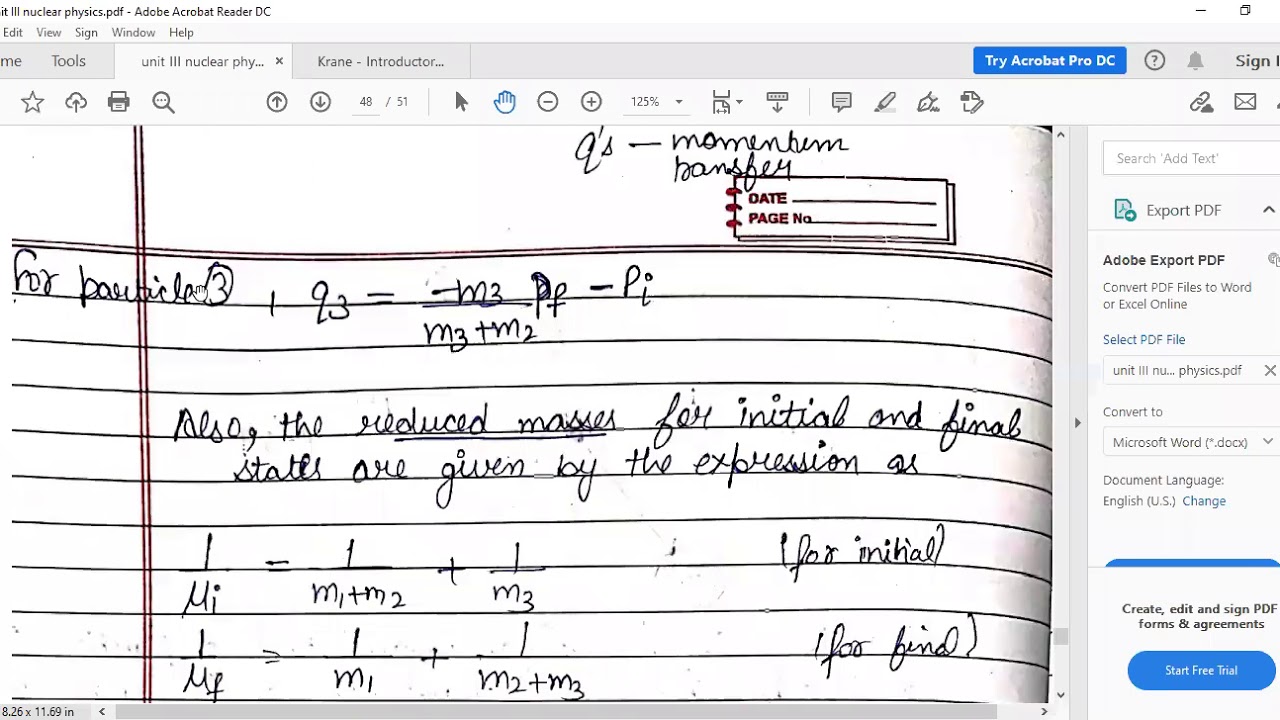 it III nuclear physics.pdf - Adobe Acrobat Reader DC
Edit View Sign Window Help
me Tools unit III nuclear phy... × Krane - Introductor... Try Acrobat Pro DC ? Sign I
48 / 51 125%
q's — momentum
transfer
DATE
PAGE No.
for particle 3, q3 = -m3/(m3+m2) Pf - Pi
Also, the reduced masses for initial and final
states are given by the expression as
1/μi = 1/(m1+m2) + 1/m3 (for initial)
1/μf = 1/m1 + 1/(m2+m3) (for final)
8.26 x 11.69 in
Search 'Add Text'
Export PDF
Adobe Export PDF
Convert PDF Files to Word
or Excel Online
Select PDF File
unit III nu... physics.pdf ×
Convert to
Microsoft Word (*.docx)
Document Language:
English (U.S.) Change
Create, edit and sign PDF
forms & agreements
Start Free Trial